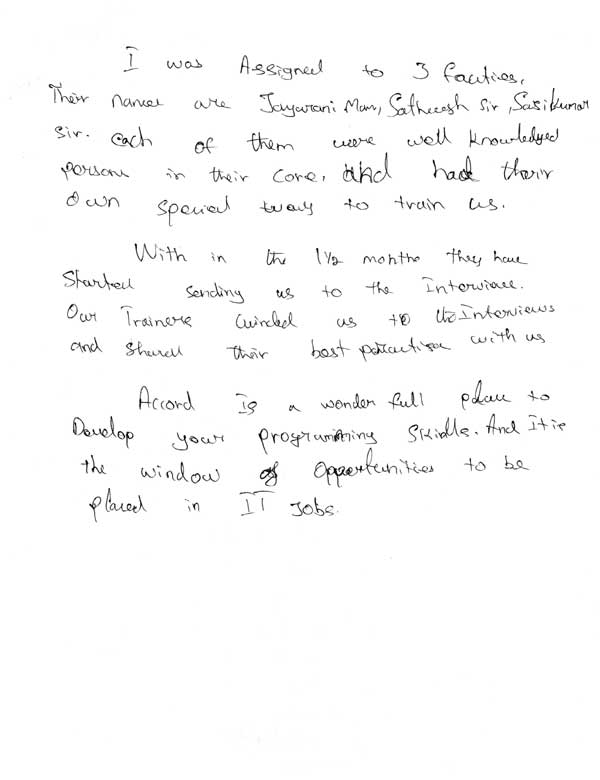 I was Assigned to 3 faculties.
Their names are Jayarani Mam, Satheesh sir, Sasikumar
sir. each of them were well knowledged
persons in their core, and had their
own special way to train us.
With in the 1½ months they have
Started sending us to the Interviews.
Our Trainers Guided us to the Interviews
and shared their best practise with us
Accord Is a wonder full place to
Develop your programming Skills. And It is
the window of Opportunities to be
placed in IT Jobs.